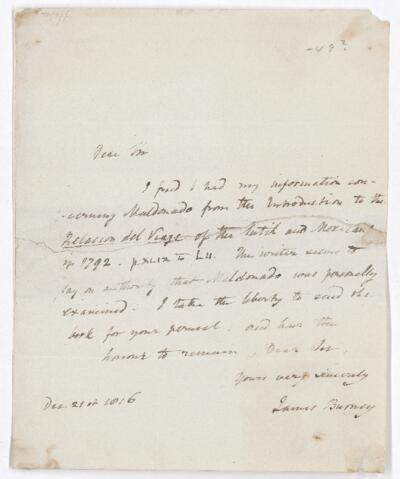 - 49?
Dear Sir
I find I had my information con-
-cerning Maldonado from the Introduction to the
Relacion del Viage of the Sutil and Mexicana
in 1792. p. XLIX to LII. The writer seems to
say on authority that Maldonado was personally
examined. I take the liberty to send the
book for your perusal. and have the
honour to remain, Dear Sir,
Yours very sincerely
James Burney
Dec 21st 1816